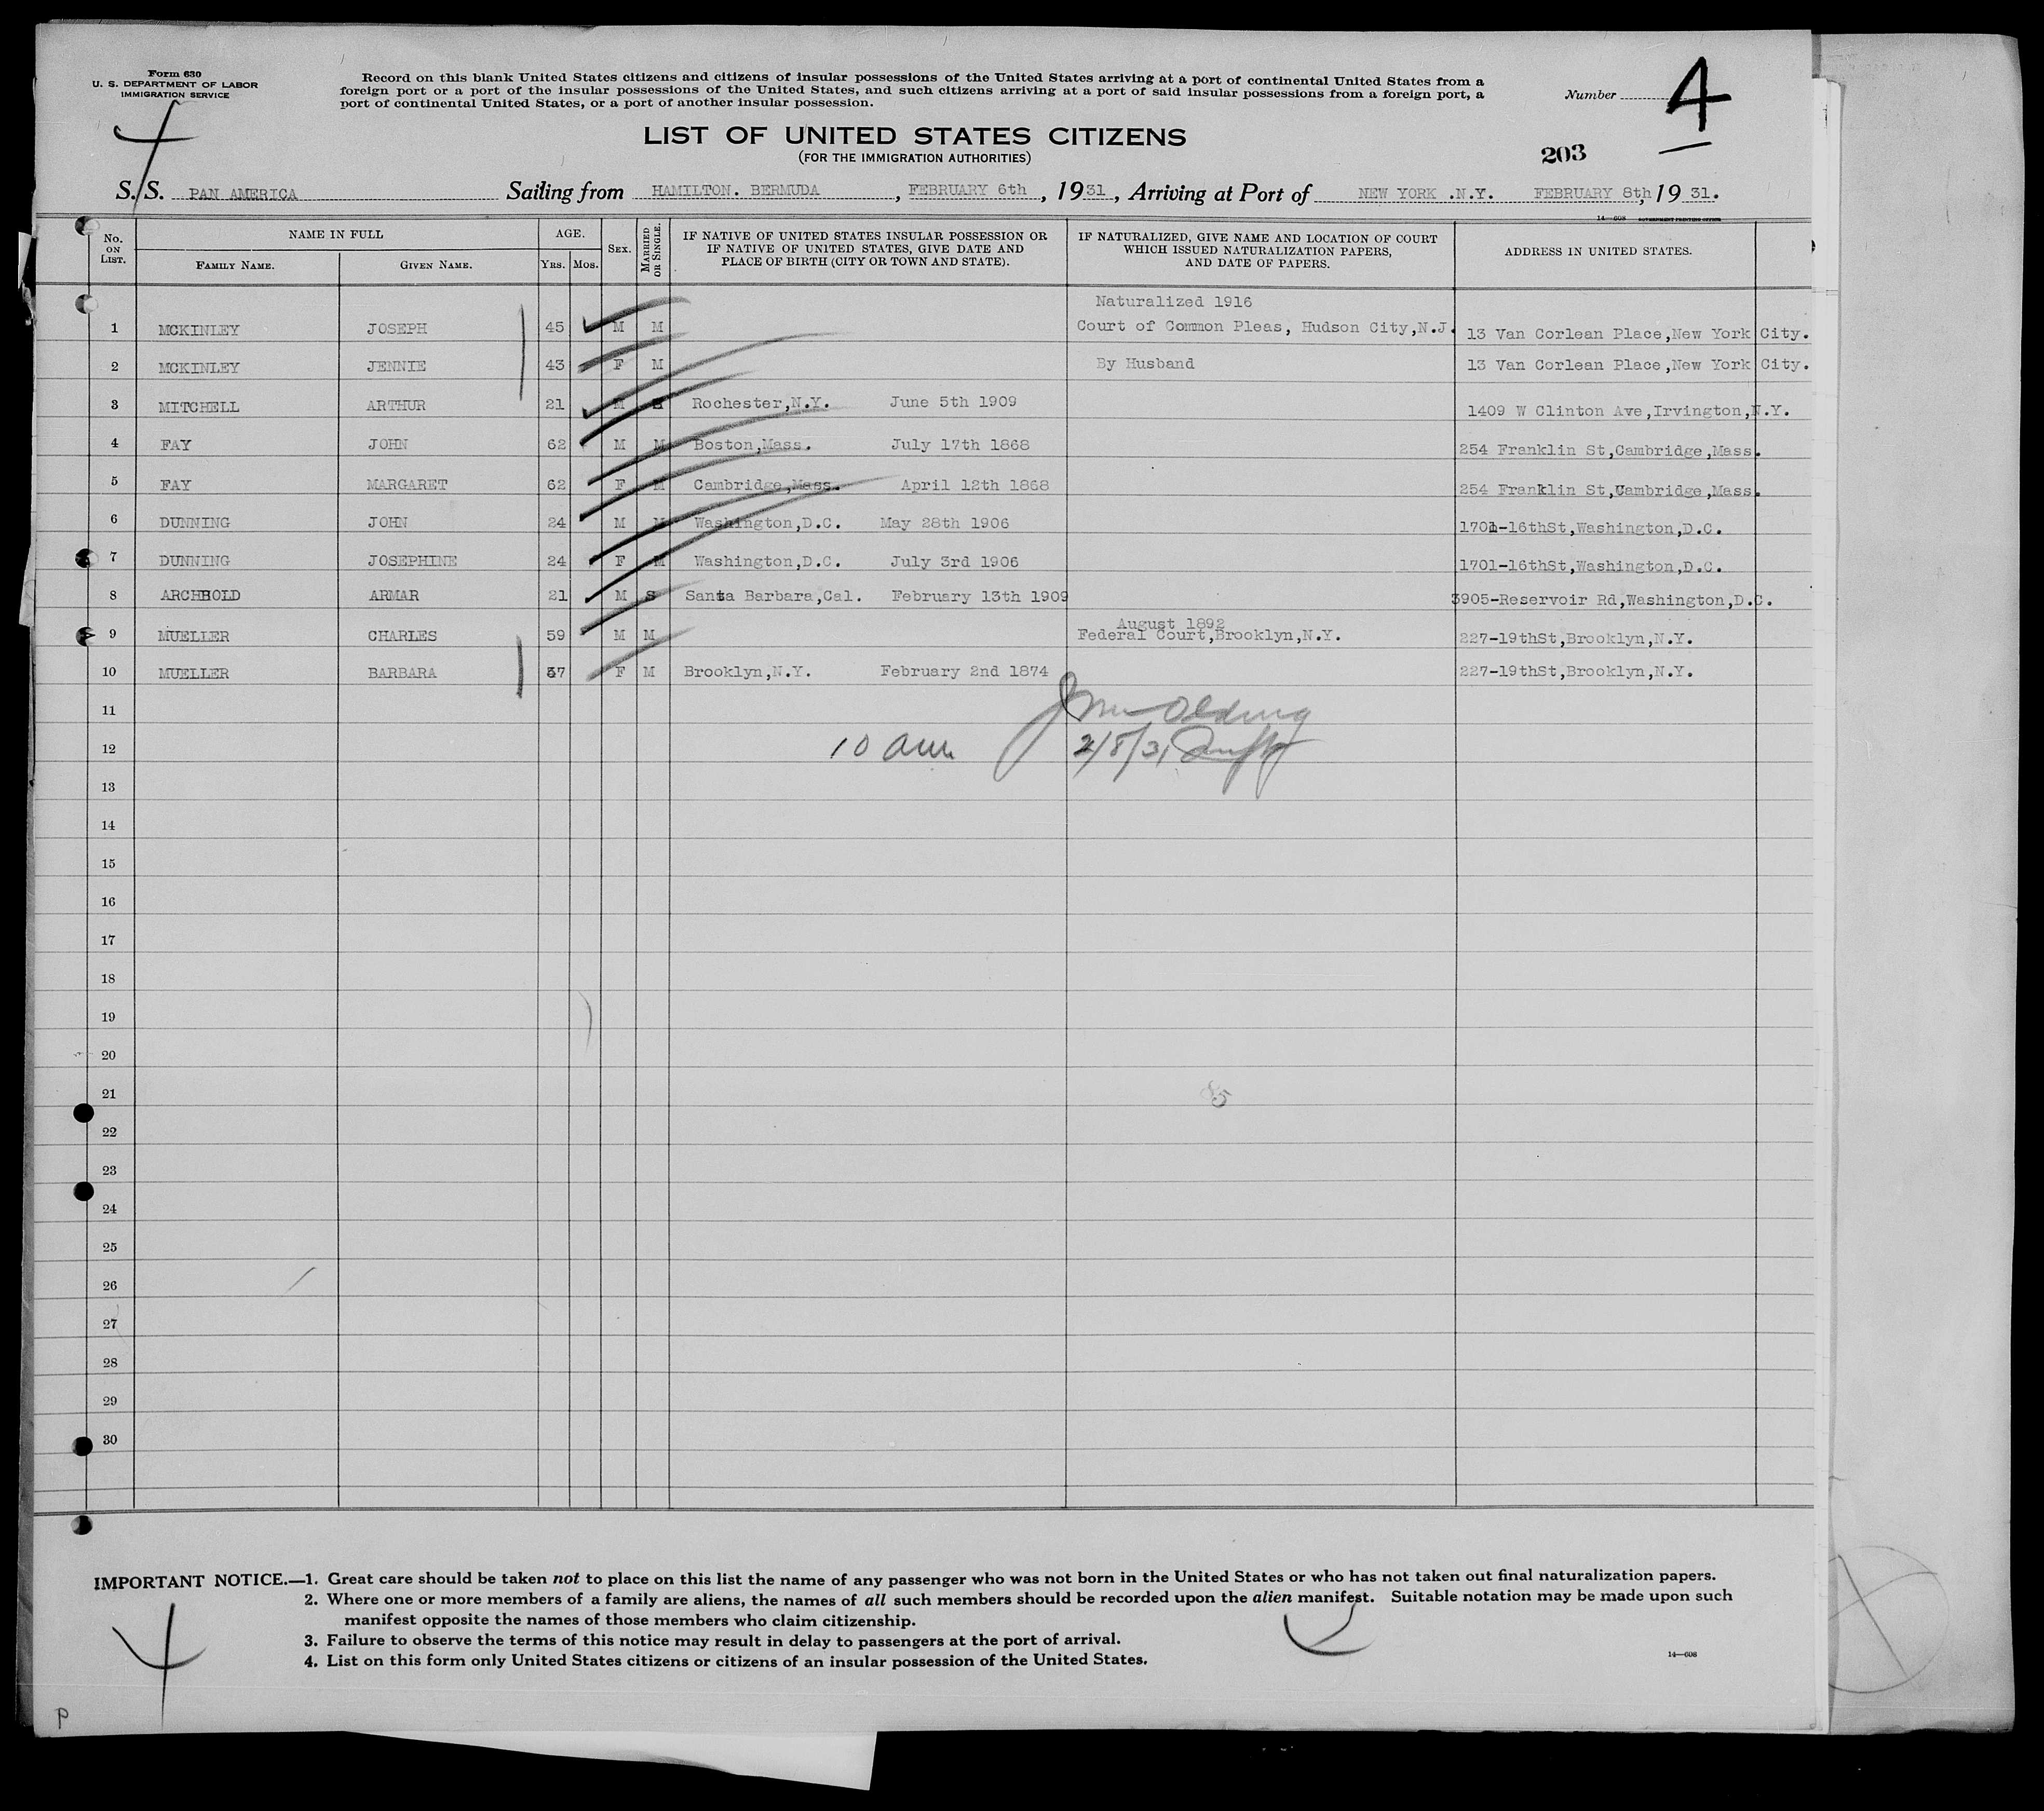 Form 630
U. S. DEPARTMENT OF LABOR
IMMIGRATION SERVICE
Record on this blank United States citizens and citizens of insular possessions of the United States arriving at a port of continental United States from a
foreign port or a port of the insular possessions of the United States, and such citizens arriving at a port of said insular possessions from a foreign port, a
port of continental United States, or a port of another insular possession.
Number 4
LIST OF UNITED STATES CITIZENS
(FOR THE IMMIGRATION AUTHORITIES)
203
S. S. PAN AMERICA Sailing from HAMILTON. BERMUDA, FEBRUARY 6th, 1931, Arriving at Port of NEW YORK .N.Y. FEBRUARY 8th, 1931.
14—608 GOVERNMENT PRINTING OFFICE
No. ON LIST. NAME IN FULL FAMILY NAME. GIVEN NAME. AGE. YRS. MOS. SEX. MARRIED OR SINGLE. IF NATIVE OF UNITED STATES INSULAR POSSESSION OR IF NATIVE OF UNITED STATES, GIVE DATE AND PLACE OF BIRTH (CITY OR TOWN AND STATE). IF NATURALIZED, GIVE NAME AND LOCATION OF COURT WHICH ISSUED NATURALIZATION PAPERS, AND DATE OF PAPERS. ADDRESS IN UNITED STATES.
Naturalized 1916
1 MCKINLEY JOSEPH 45 M M Court of Common Pleas, Hudson City,N.J. 13 Van Corlean Place,New York City.
2 MCKINLEY JENNIE 43 F M By Husband 13 Van Corlean Place,New York City.
3 MITCHELL ARTHUR 21 M Rochester,N.Y. June 5th 1909 1409 W Clinton Ave,Irvington,N.Y.
4 FAY JOHN 62 M M Boston,Mass. July 17th 1868 254 Franklin St,Cambridge,Mass.
5 FAY MARGARET 62 F M Cambridge,Mass. April 12th 1868 254 Franklin St,Cambridge,Mass.
6 DUNNING JOHN 24 M M Washington,D.C. May 28th 1906 1701-16thSt,Washington,D.C.
7 DUNNING JOSEPHINE 24 F M Washington,D.C. July 3rd 1906 1701-16thSt,Washington,D.C.
8 ARCHBOLD ARMAR 21 M S Santa Barbara,Cal. February 13th 1909 3905-Reservoir Rd,Washington,D.C.
August 1892
9 MUELLER CHARLES 59 M M Federal Court,Brooklyn,N.Y. 227-19thSt,Brooklyn,N.Y.
10 MUELLER BARBARA 57 F M Brooklyn,N.Y. February 2nd 1874 227-19thSt,Brooklyn,N.Y.
11
12 10 am 2/8/31
13
14
15
16
17
18
19
20
21
22
23
24
25
26
27
28
29
30
IMPORTANT NOTICE.—1. Great care should be taken not to place on this list the name of any passenger who was not born in the United States or who has not taken out final naturalization papers.
2. Where one or more members of a family are aliens, the names of all such members should be recorded upon the alien manifest. Suitable notation may be made upon such
manifest opposite the names of those members who claim citizenship.
3. Failure to observe the terms of this notice may result in delay to passengers at the port of arrival.
4. List on this form only United States citizens or citizens of an insular possession of the United States.
14—608
P